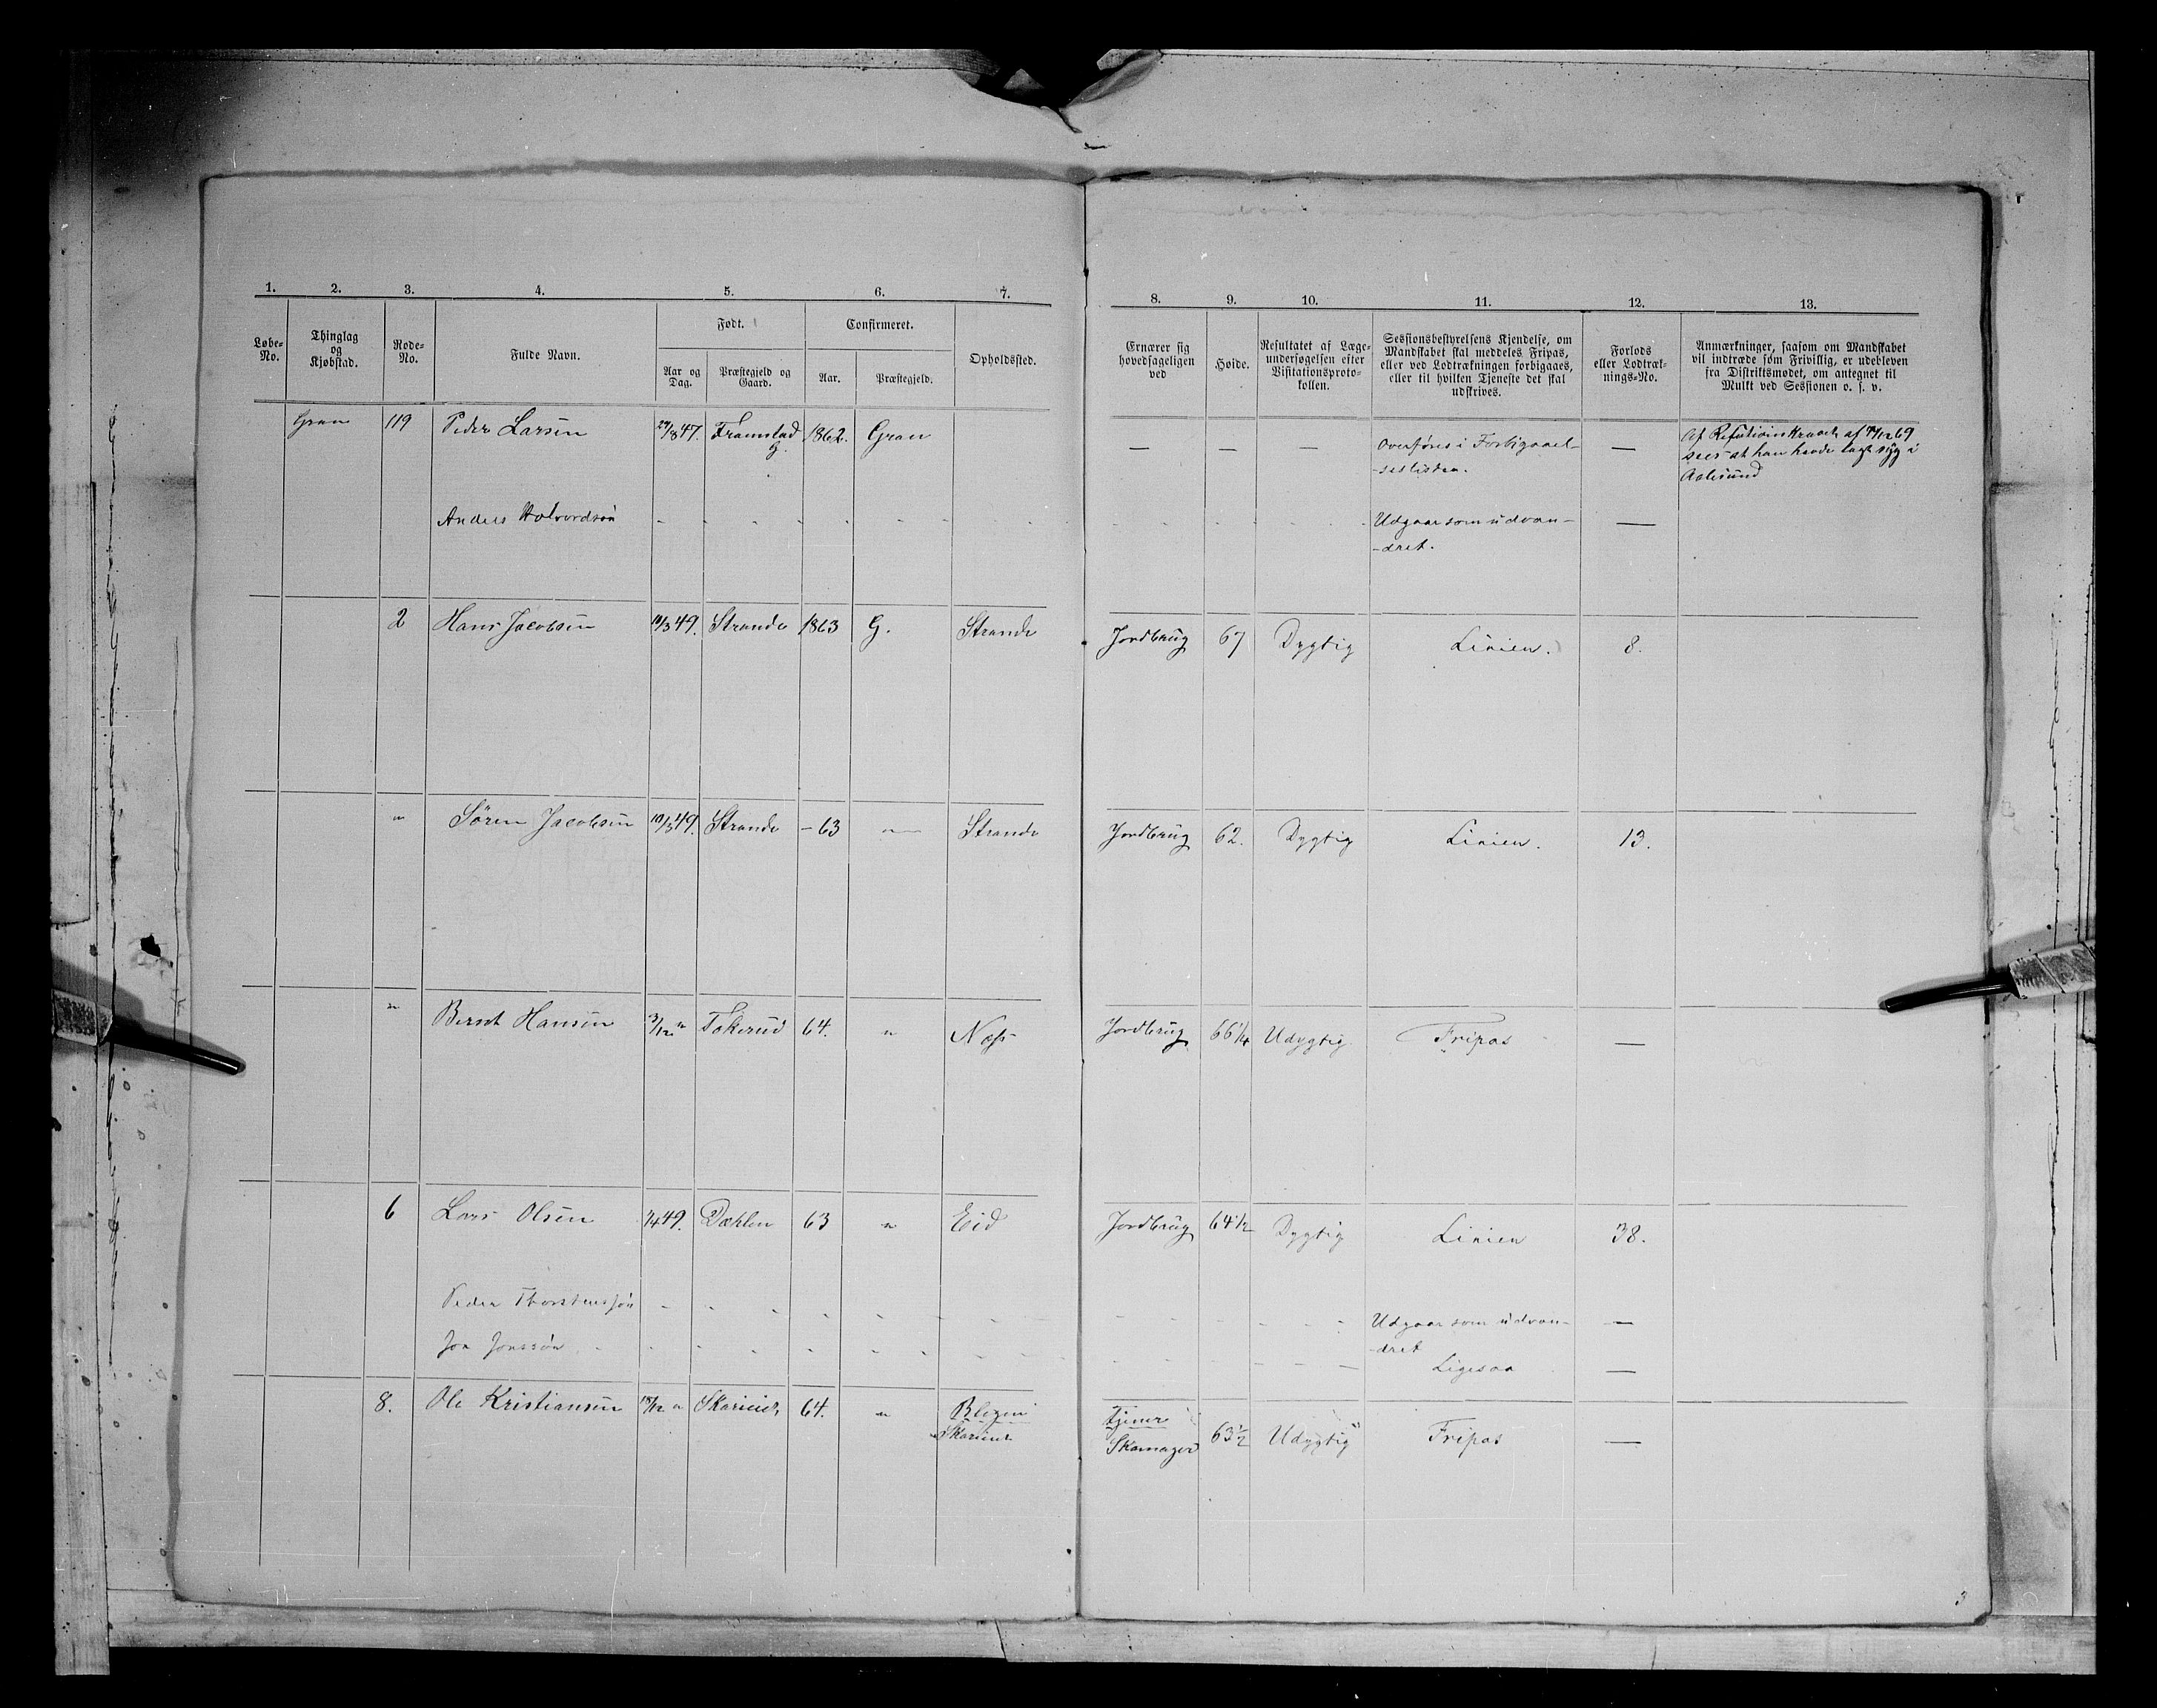 1. 2. 3. 4. 5. 6. 7. 8. 9. 10. 11. 12. 13.
Løbe-No.
Thinglag og Kjøbstad.
Rode-No.
Fulde Navn.
Født.
Aar og Dag.
Præstegjeld og Gaard.
Confirmeret.
Aar.
Præstegjeld.
Opholdssted.
Ernærer sig hovedsageligen ved
Høide.
Resultatet af Læge-undersøgelsen efter Visitationsproto-kollen.
Sessionsbestyrelsens Kjendelse, om Mandskabet skal meddeles Fripas, eller ved Lodtrækningen forbigaaes, eller til hvilken Tjeneste det skal udskrives.
Forlods eller Lodtræk-nings-No.
Anmærkninger, saasom om Mandskabet vil indtræde som Frivillig, er udebleven fra Distriktsmødet, om antegnet til Mulkt ved Sessionen o. s. v.
Gran 119 Peder Larsen 24/8 47. Framstad G. 1862. Gran — — — Overføres i Forbigaael-
-seslisten. —
sees at han havde lagt syg i
Aalesund
Anders Halvordsøn - - - - - - - - - - - Udgaar som udvan-
-dret. —
2 Hans Jacobsen 49. Strande 1863 G. Strande Jordbrug 67 Dygtig Linien. 8.
" Søren Jacobsen 10/3 49. Strande - 63 " Strande Jordbrug 62. Dygtig Linien. 13.
" Bernt Hansen 3/12 " Tokerud 64. " Næss Jordbrug 66 1/4 Udygtig Fripas —
6 Lars Olsen 49. Dæhlen 63 " Eid Jordbrug 64 1/2 Dygtig Linien 38.
Peder Thorstensøn - - - - - - - - - - - Udgaar som udvan-
-dret —
Jon Jonssøn - - - - - - - - - - - Ligesaa —
8. Ole Kristiansen 18/12 " 64. " Blegen Tjener
Skomager 63 1/2 Udygtig Fripas —
3